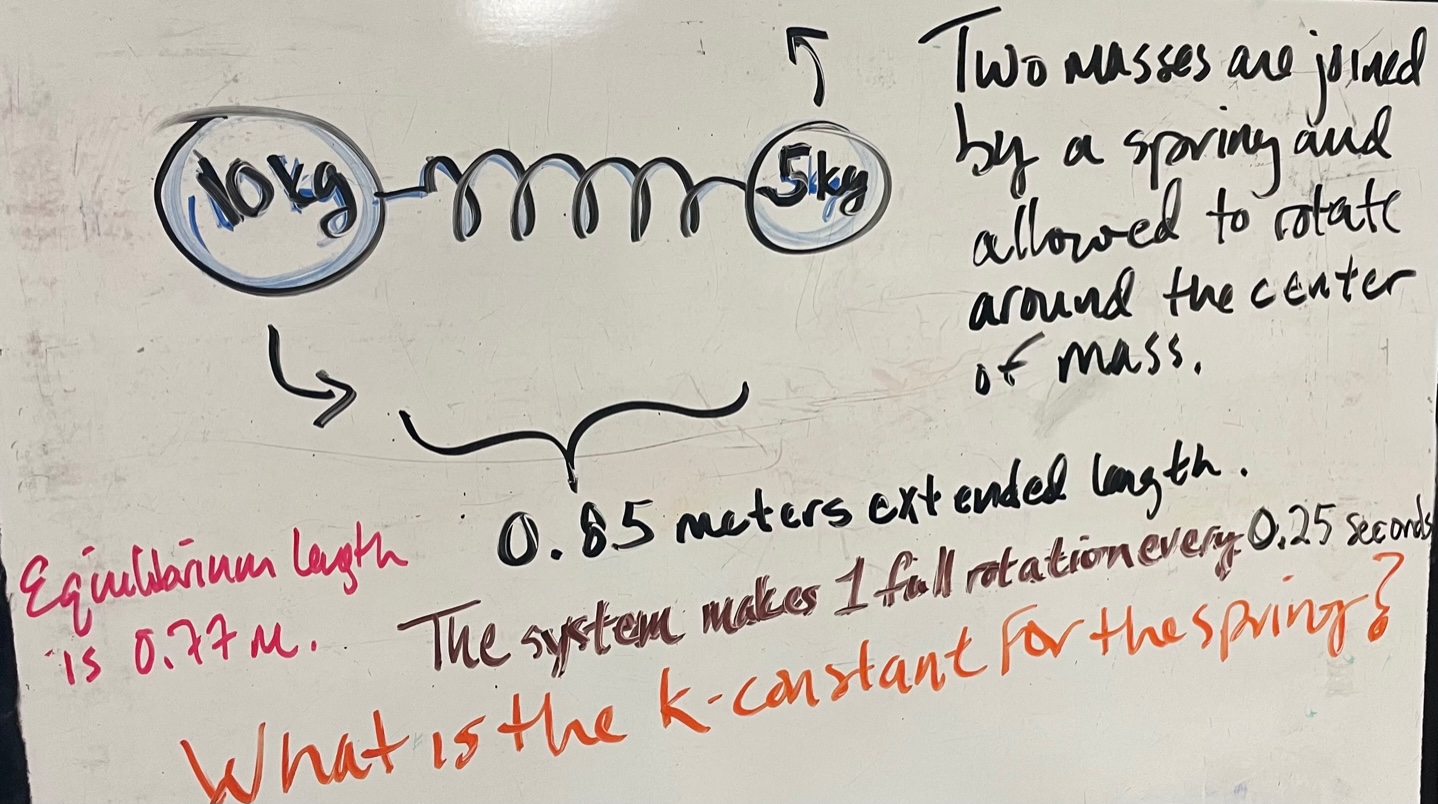 10kg
5kg
Two masses are joined
by a spring and
allowed to rotate
around the center
of mass.
0.85 meters extended length.
Equilibrium length
is 0.77 m.
The system makes 1 full rotation every 0.25 seconds
What is the k-constant for the spring?